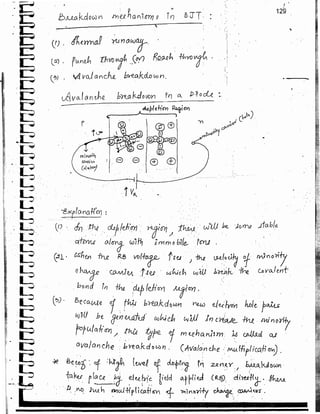 129
Breakdown mechanisms in BJT :
(1). Thermal runaway.
(2). Punch Through (or) Reach through.
(3). Avalanche breakdown.
Avalanche breakdown in a Diode :
depletion Region
P
n
minority carrier (hole)
minority carrier
(electron)
VR
Explanation :
(1). In the depletion region, there will be some stable
atoms along with immobile ions.
(2). When the RB voltage ↑ses, the velocity of minority
charge carriers ↑ses which will break the covalent
bond in the depletion region.
(3). Because of this breakdown new electron hole pairs
will be generated which will increase the minority
population, this type of mechanism is called as
avalanche breakdown. (Avalanche multiplication).
* Because of high level of doping in zener, breakdown
takes place by electric field applied (RB) directly. There
is no such multiplication of minority charge carriers.